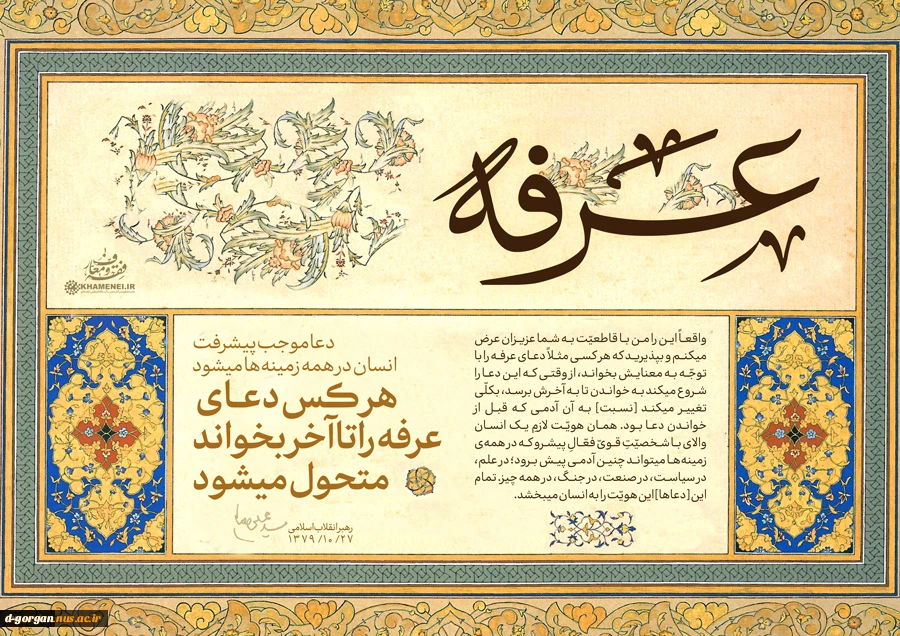 عرفه
فقه و معارف
KHAMENEI.IR
دعا موجب پیشرفت
انسان در همه زمینه‌ها میشود
هر کس دعای
عرفه را تا آخر بخواند
متحول میشود
رهبر انقلاب اسلامی
۱۳۷۹/۱۰/۲۷
واقعاً این را من با قاطعیّت به شما عزیزان عرض
میکنم و بپذیرید که هر کسی مثلاً دعای عرفه را با
توجّه به معنایش بخواند، از وقتی که این دعا را
شروع میکند به خواندن تا به آخرش برسد، بکلّی
تغییر میکند [نسبت] به آن آدمی که قبل از
خواندن دعا بود. همان هویّت لازمِ یک انسان
والای با شخصیّتِ قویّ فعّالِ پیشرو که در همه‌ی
زمینه‌ها میتواند چنین آدمی پیش برود؛ در علم،
در سیاست، در صنعت، در جنگ، در همه چیز. تمام
این [دعاها] این هویّت را به انسان میبخشد.
d-gorgan.nus.ac.ir